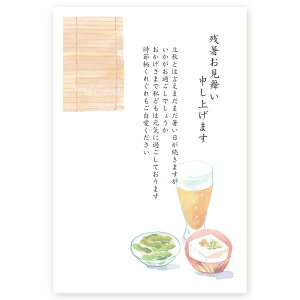 残暑お見舞い
申し上げます
立秋とは言えまだまだ暑い日が続きますが
いかがお過ごしでしょうか
おかげさまで私どもは元気に過ごしております
時節柄くれぐれもご自愛ください